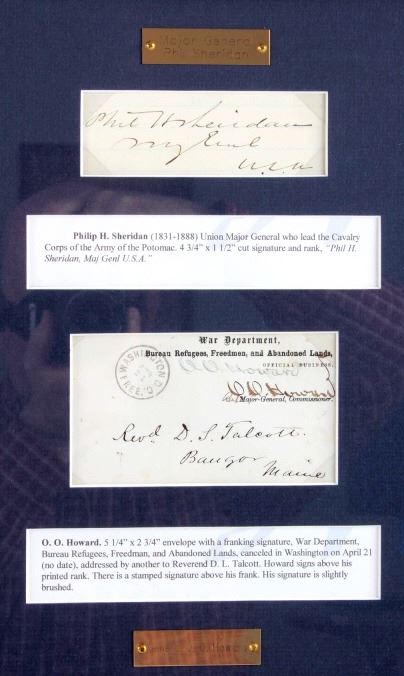 Major General
Phil Sheridan
Phil H Sheridan
Maj Genl
U.S.A.
Philip H. Sheridan (1831-1888) Union Major General who lead the Cavalry
Corps of the Army of the Potomac. 4 3/4" x 1 1/2" cut signature and rank, "Phil H.
Sheridan, Maj Genl U.S.A."
War Department,
Bureau Refugees, Freedmen, and Abandoned Lands,
OFFICIAL BUSINESS.
O. O. Howard
O. O. Howard
Major-General, Commissioner.
WASHINGTON
FREE
D.C.
Revd. D. S. Talcott.
Bangor
Maine
O. O. Howard. 5 1/4" x 2 3/4" envelope with a franking signature, War Department,
Bureau Refugees, Freedman, and Abandoned Lands, canceled in Washington on April 21
(no date), addressed by another to Reverend D. L. Talcott. Howard signs above his
printed rank. There is a stamped signature above his frank. His signature is slightly
brushed.